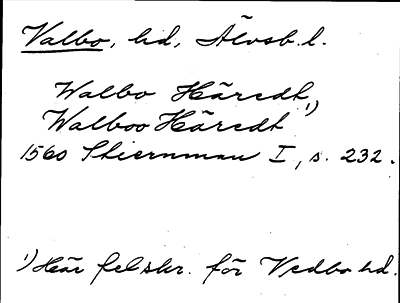 Valbo, hd, Älvsb. l.
Walbo Häredt,
Walboo Häredt ¹)
1560 Stiernman I, s. 232.
¹) Här felskr. för Vedbo hd.